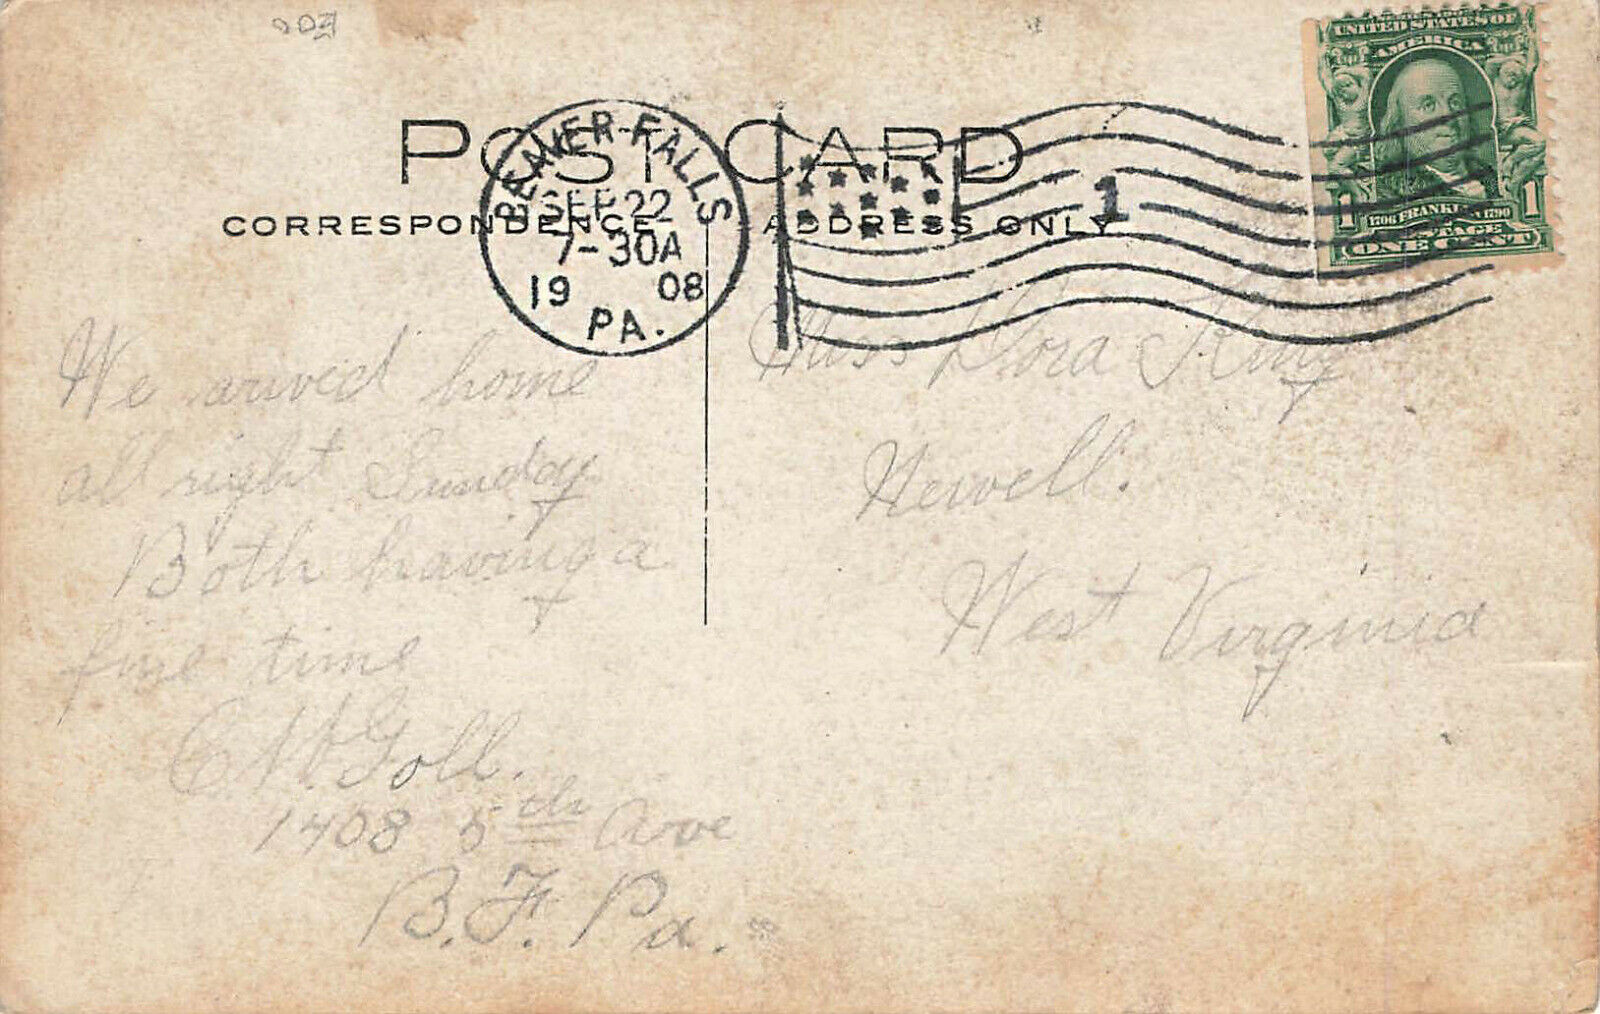 UNITED STATES OF
AMERICA
1 1706 FRANKLIN 1790 1
POSTAGE
ONE CENT
POST CARD
CORRESPONDENCE
ADDRESS ONLY
BEAVER FALLS
SEP 22
7-30A
19 08
PA.
1
We arived home
all right Sunday
Both having a
fine time
Goll.
1408 5th Ave
B.F. Pa.
Miss Dora King
Newell.
West Virginia